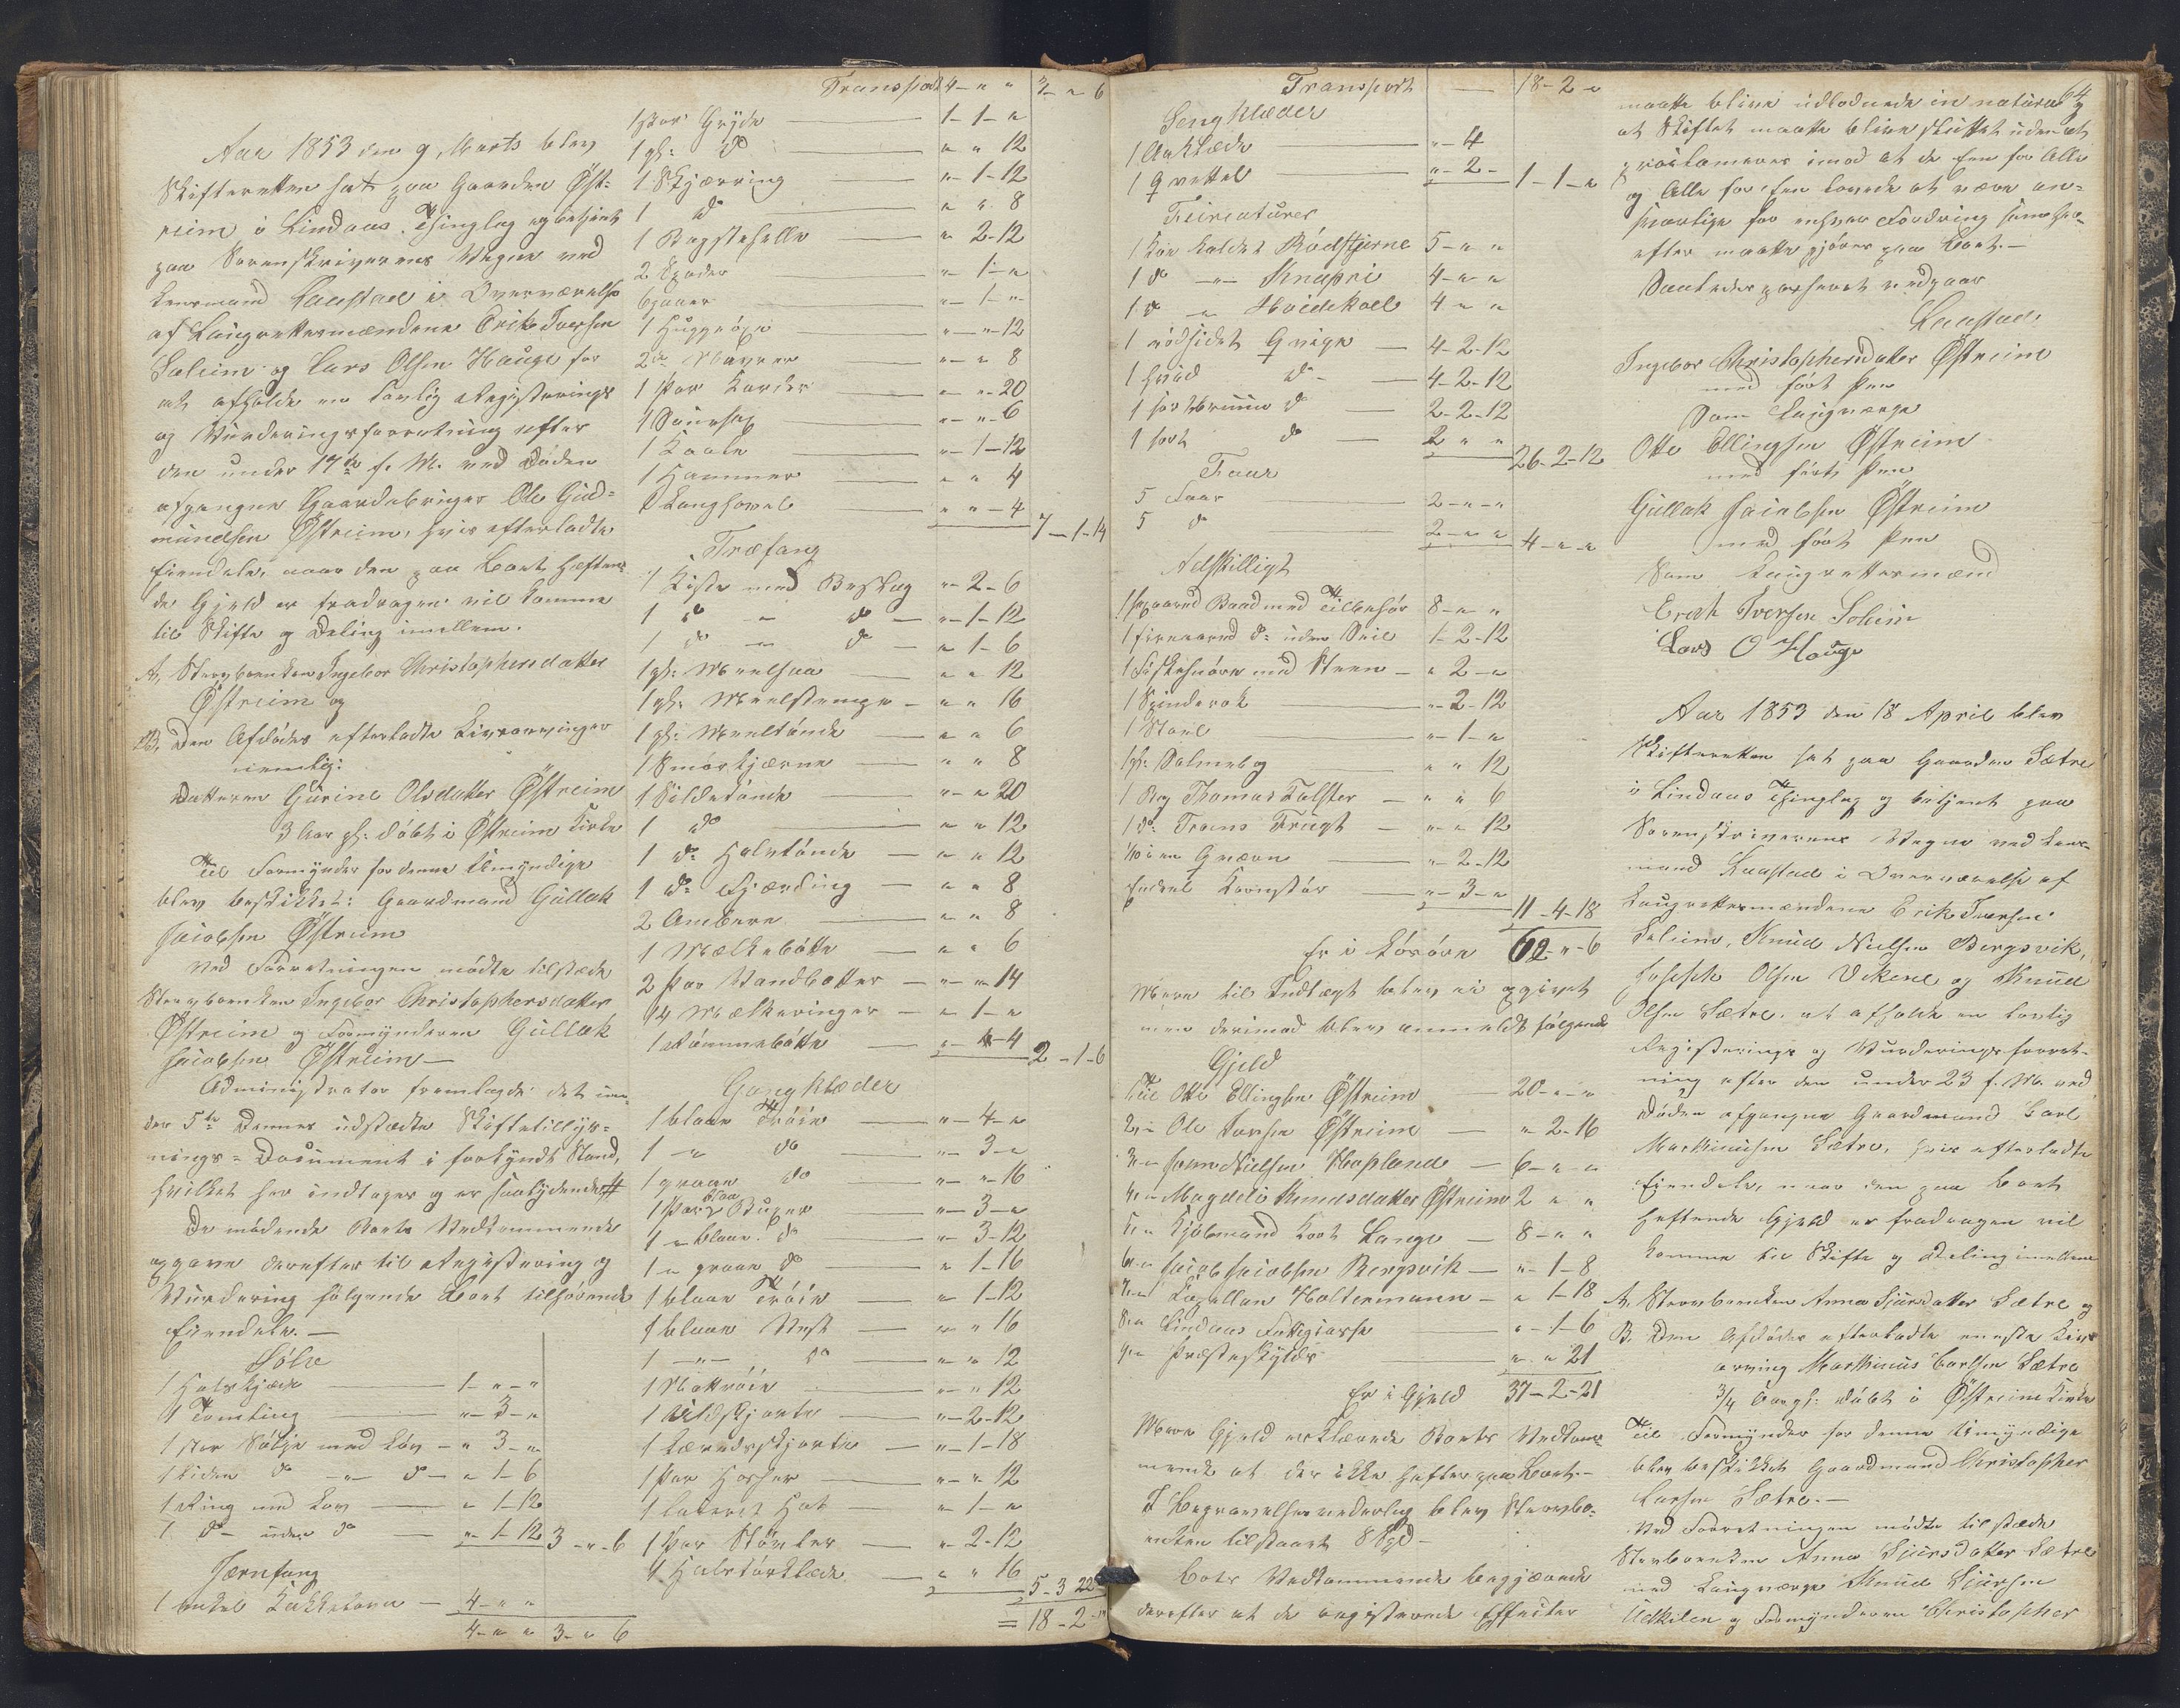 Aar 1853 den 9 Marts blev
Skifteretten sat paa Gaarden Öst-
reim i Lindaas Thinglag og betjent
paa Sorenskriverens Vegne ved
Lensmand Kaastad i Overværelse
af Laugrettesmændene Erik Iversen
Soleim og Lars Olsen Hauge for
at afholde en lovlig Registerings
og Vurderingsforretning efter
den under 17de f. M. ved Döden
afgangne Gaardebruger Ole Gud-
mundsen Östreim, hvis efterladte
Eiendele, naar den paa Boet hæften-
de Gjeld er fradragen vil komme
til Skifte og Deling imellem.
A, Stervboenken Ingebor Christophersdatter
Östreim og
B, Den Afdödes efterladte Livsarvinger
nemlig:
Datteren Gurine Olsdatter Östreim
3 Aar gl: döbt i Östreim Kirke
Til Formynder for denne Umyndige
blev beskikket: Gaardmand Gullak
Jacobsen Östreim
Ved Forretningen mödte tilstæde
Stervboenken Ingebor Christophersdatter
Östreim og Formynderen Gullak
Jacobsen Östreim —
Administrator fremlagde det un-
der 5te Dennes udstædte Skiftetillys-
nings-Document i forkyndt Stand,
hvilket her indtages og er saalydende #
De mödende Boets Vedkommende
opgave derefter til Registering og
Vurdering fölgende Boet tilhörende
Eiendele. —
Sölv
1 Halskjæde — 1 - " - "
1 Tomling — " - 3 - "
1 stor Sölje med Löv — " 3 - "
1 liden do — " — do — " 1 - 6
1 Ring med Lov — " 1 - 12
1 do — uden do — " - 1 - 12 3 - " - 6
Jernfang
1 enkel Kakkelovn — 4 - " "
4 - " " 3 - " 6
Transport 4 - " " 3 - " 6
1 stor Gryde — 1 - 1 - "
1 gl: do — " " 12
1 Skjærring — " - 1 - 12
1 do — " " 8
1 Bagstehelle — " 2 - 12
2 Spader — " - 1 - "
6 — " - 1 - "
1 Huggeöxe — " - " - 12
2 — " - " 8
1 Par Karder — " - " - 20
1 Sauesax — " - " - 6
1 — " - 1 - 12
1 Hammer — " " 4
1 Langhövel — " " - 4
7 - 1 - 14
Træfang
1 Kiste med Beslag " - 2 - 6
1 do — " — do — " - 1 - 12
1 do — " — do — " 1 - 6
1 gl: — " " 12
1 gl: — " " 16
1 gl: Meeltönde — " " 6
1 Smörkjærne — " " 8
1 Sildetönde — " - " 20
1 do — " " 12
1 do Halvtönde — " " 12
1 do Fjærding — " " 8
2 Ambere — " - " 8
1 Mælkebötte — " " 6
2 Par Vandbötter — " - " 14
14 Mælkeringer — " 1 - "
1 Römmebötte — " - " - 4 2 - 1 - 6
Gangklæder
1 blaae Tröie — " - 4 - "
1 — " — do — " - 3 - "
1 graae do — " - " - 16
1 Par blaa Buxer — " - 3 - "
1 " blaae do — " - 3 - 12
1 " graae do — " 1 - 16
1 blaae Tröie — " - 1 - 12
1 blaae Vest — " - " 16
1 — " — do — " - " 12
1 Nattröie — " - " 12
1 Uldskjorte — " - 2 - 12
1 Lærredsskjorte — " - 1 - 18
1 Par Hoser — " - " 12
1 lakeret Hat — " - 1 - "
1 Par Stövler — " - 2 - 12
4 Halstörklæder — " " 16
5 - 3 22
= 18 - 2 - "
Transport — 18 - 2 - "
Sengklæder
1 Aaklæde — " - 4
1 Qvittel — " - 2 - 1 - 1 - "
Kreaturer
1 Koe kaldet Rödstjerne 5 - " "
1 do — " — Knapri 4 - " "
1 do " Hvidekoll 4 - " "
1 rödsidet Qvige — 4 - 2 - 12
1 hvid do — 4 - 2 - 12
1 sortbruun do — 2 - 2 - 12
1 sort do — 2 " "
26 - 2 - 12
Faar
5 Faar — 2 - " - "
5 do — 2 - " " 4 - " - "
Adskilligt
1 Baad med Tilbehör 8 - " "
1 do: uden Seil 1 - 2 - 12
1 Fiskesnöre med Steen — " 2 - "
1 Spinderok — " - 2 - 12
1 Stoel — " - 1 - "
1 gl: Salmebog — " " 12
1 Bog Thomas Falster — " " 6
1 do: Troens Frugt — " - " 12
1/10 i en Qværn — " - 2 - 12
Endeel Kornstör — " - 3 - "
11 - 4 - 18
Er i Lösöre 62 " - 6
Mere til Indtægt blev ei opgivet
men derimod blev anmeldt fölgende
Gjeld
1, Til Otte Ellingsen Östreim — 20 - " - "
2, " Ole Larsen Östreim — " 2 - 16
3, " Nielsen Hopland — 6 - " - "
4, " Magdeli Knudsdatter Östreim 2 " "
5, " Kjöbmand Kort Lange — 8 - " "
6, " Jacob Jacobsen Bergsvik — " - 1 - 8
7, " Capellan Holtermann — " 1 - 18
8, " Lindaas Fattigkasse — " - 1 - 6
9, " Præsteskyld — " - " 21
Er i Gjeld 37 - 2 - 21
Mere Gjeld erklærede Boets Vedkom-
mende at der ikke hefter paa Boet. —
I Begravelsesvederlag blev Stervbo-
enken tilstaaet 8 Spd —
Boets Vedkommende begjærede
derefter at de registrerede Effecter
64
maatte blive udlodnede in natura og
at Skiftet maatte blive sluttet uden at
proclameres imod at de Een for Alle
og Alle for Een lovede at være an-
svarlige for enhver Fordring som her-
efter maatte gjöres paa Boet. —
Saaledes passeret vedgaar
Kaastad
Ingebor Christophersdatter Östreim
med fört Pen
Som Laugværge
Otte Ellingsen Östreim
med fört Pen
Gullak Jacobsen Östreim
med fört Pen
Som Laugrettesmænd
Erek Iversen Soleim
Lars O Hauge
Aar 1853 den 18 April blev
Skifteretten sat paa Gaarden Sætre
i Lindaas Thinglag og betjent paa
Sorenskriverens Vegne ved Lens-
mand Kaastad i Overværelse af
Laugrettesmændene Erik Iversen
Soleim, Knud Nielsen Bergsvik,
Joseph Olsen Vikene og Knud
Olsen Sætre, at afholde en lovlig
Registerings og Vurderingsforret-
ning efter den under 23 f. M. ved
Döden afgangne Gaardmand Carl
Marthinusen Sætre, hvis efterladte
Eiendele, naar den paa Boet
heftende Gjeld er fradragen vil
komme til Skifte og Deling imellem
A, Stervboenken Anna Sjursdatter Sætre og
B, Den Afdödes efterladte eneste Livs
arving Marthinus Carlsen Sætre
3/4 Aar gl: döbt i Östreim Kirke
Til Formynder for denne Umyndige
blev beskikket Gaardmand Christopher
Larsen Sætre. —
Ved Forretningen mödte tilstæde
Stervboenken Anna Sjursdatter Sætre
med Laugværge Knud Sjursen
og Formynderen Christopher